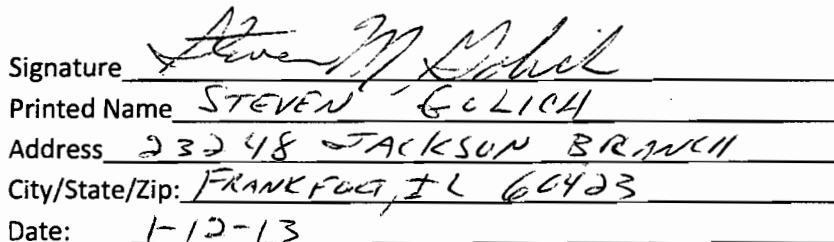 Signature Steven M. Golich
Printed Name STEVEN GOLICH
Address 23248 JACKSON BRANCH
City/State/Zip: FRANKFORT, IL 60423
Date: 1-12-13